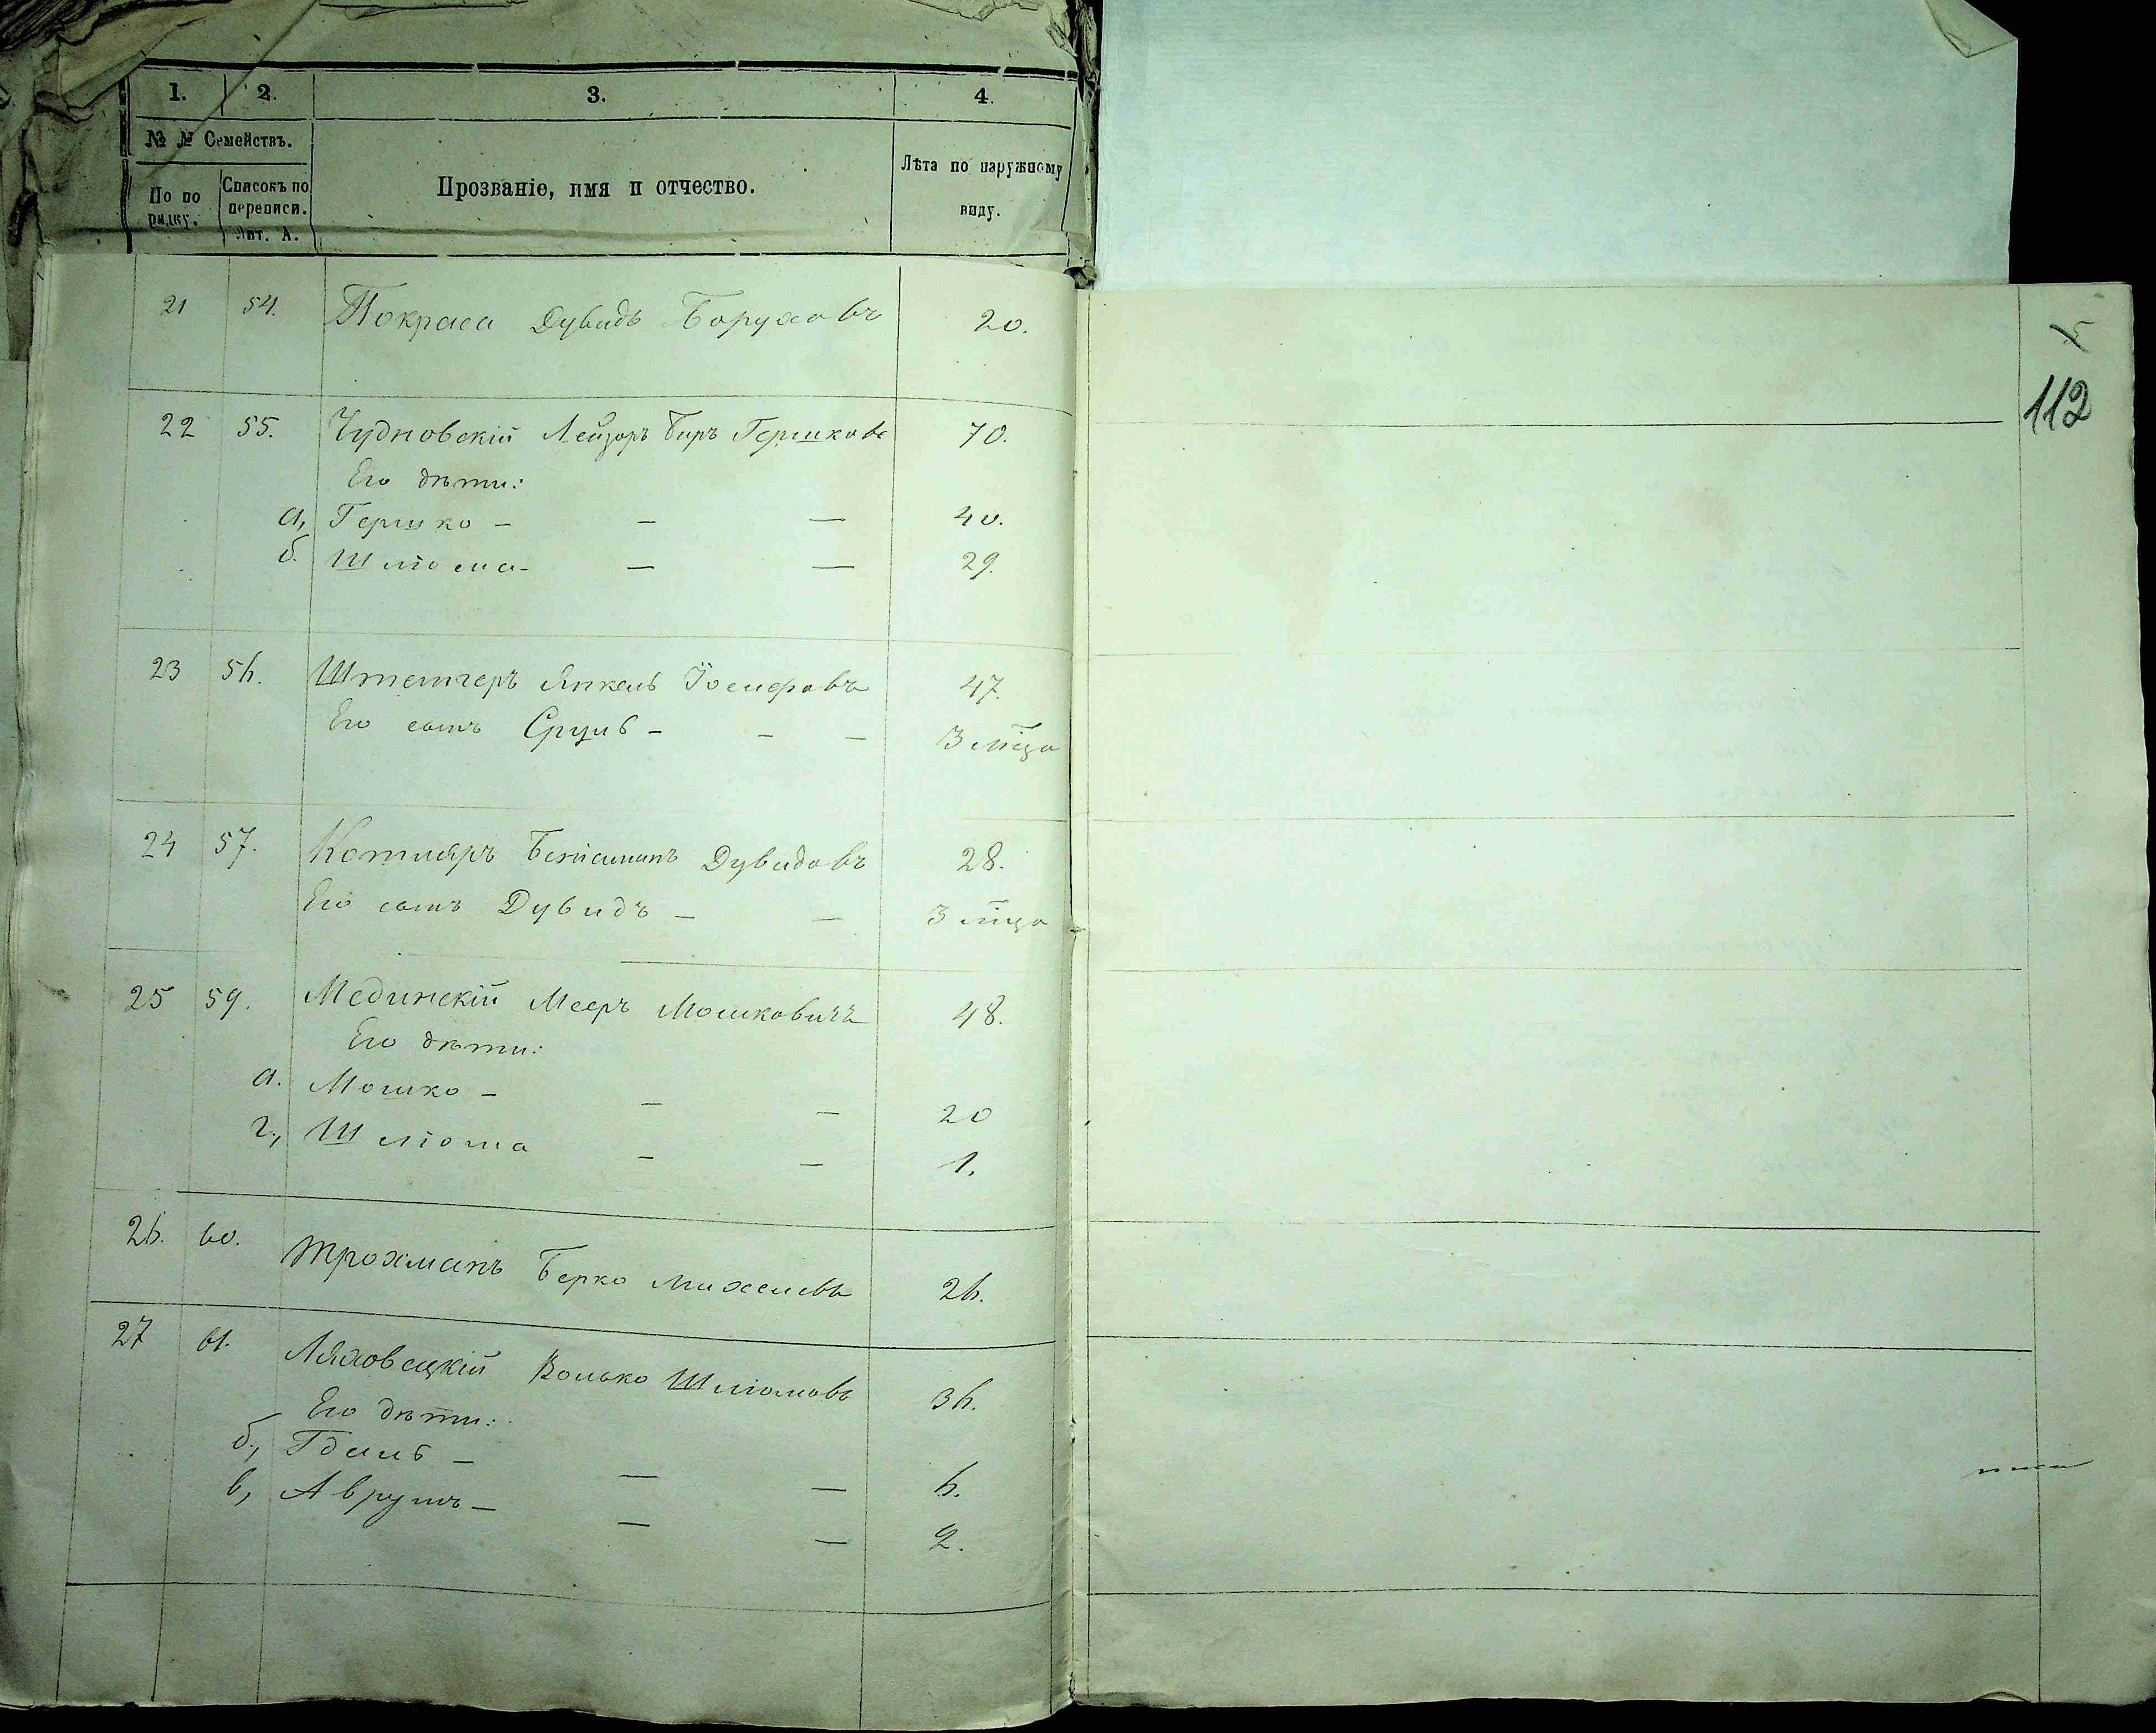 1. 2. 3. 4.
№ № Семействъ.
По по рядку.
Списокъ по переписи. Лит. А.
Прозваніе, имя и отчество.
Лѣта по наружному виду.
21 54. Покраса Дувидъ Боруховъ 20.
22 55. Чудновскій Лейзоръ Биръ Гершковъ 70.
Его дѣти:
а, Гершко - — — 40.
б. Шліома - — — 29.
23 56. Штемгеръ Янкель Іосифовъ 47.
Его сынъ Сруль - - - 3 мѣца
24 57. Котляръ Беніаминъ Дувидовъ 28.
Его сынъ Дувидъ - - 3 мѣца
25 59. Мединскій Мееръ Мошковичъ 48.
Его дѣти:
а. Мошко - - - 20
г., Шліома - - 1.
26. 60. Трохманъ Берко Михелевъ 26.
27 61. Ляховецкій Волько Шліомовъ 36.
Его дѣти:
б., Гдаль - — — 6.
в, Аврумъ - — — 2.
5
112